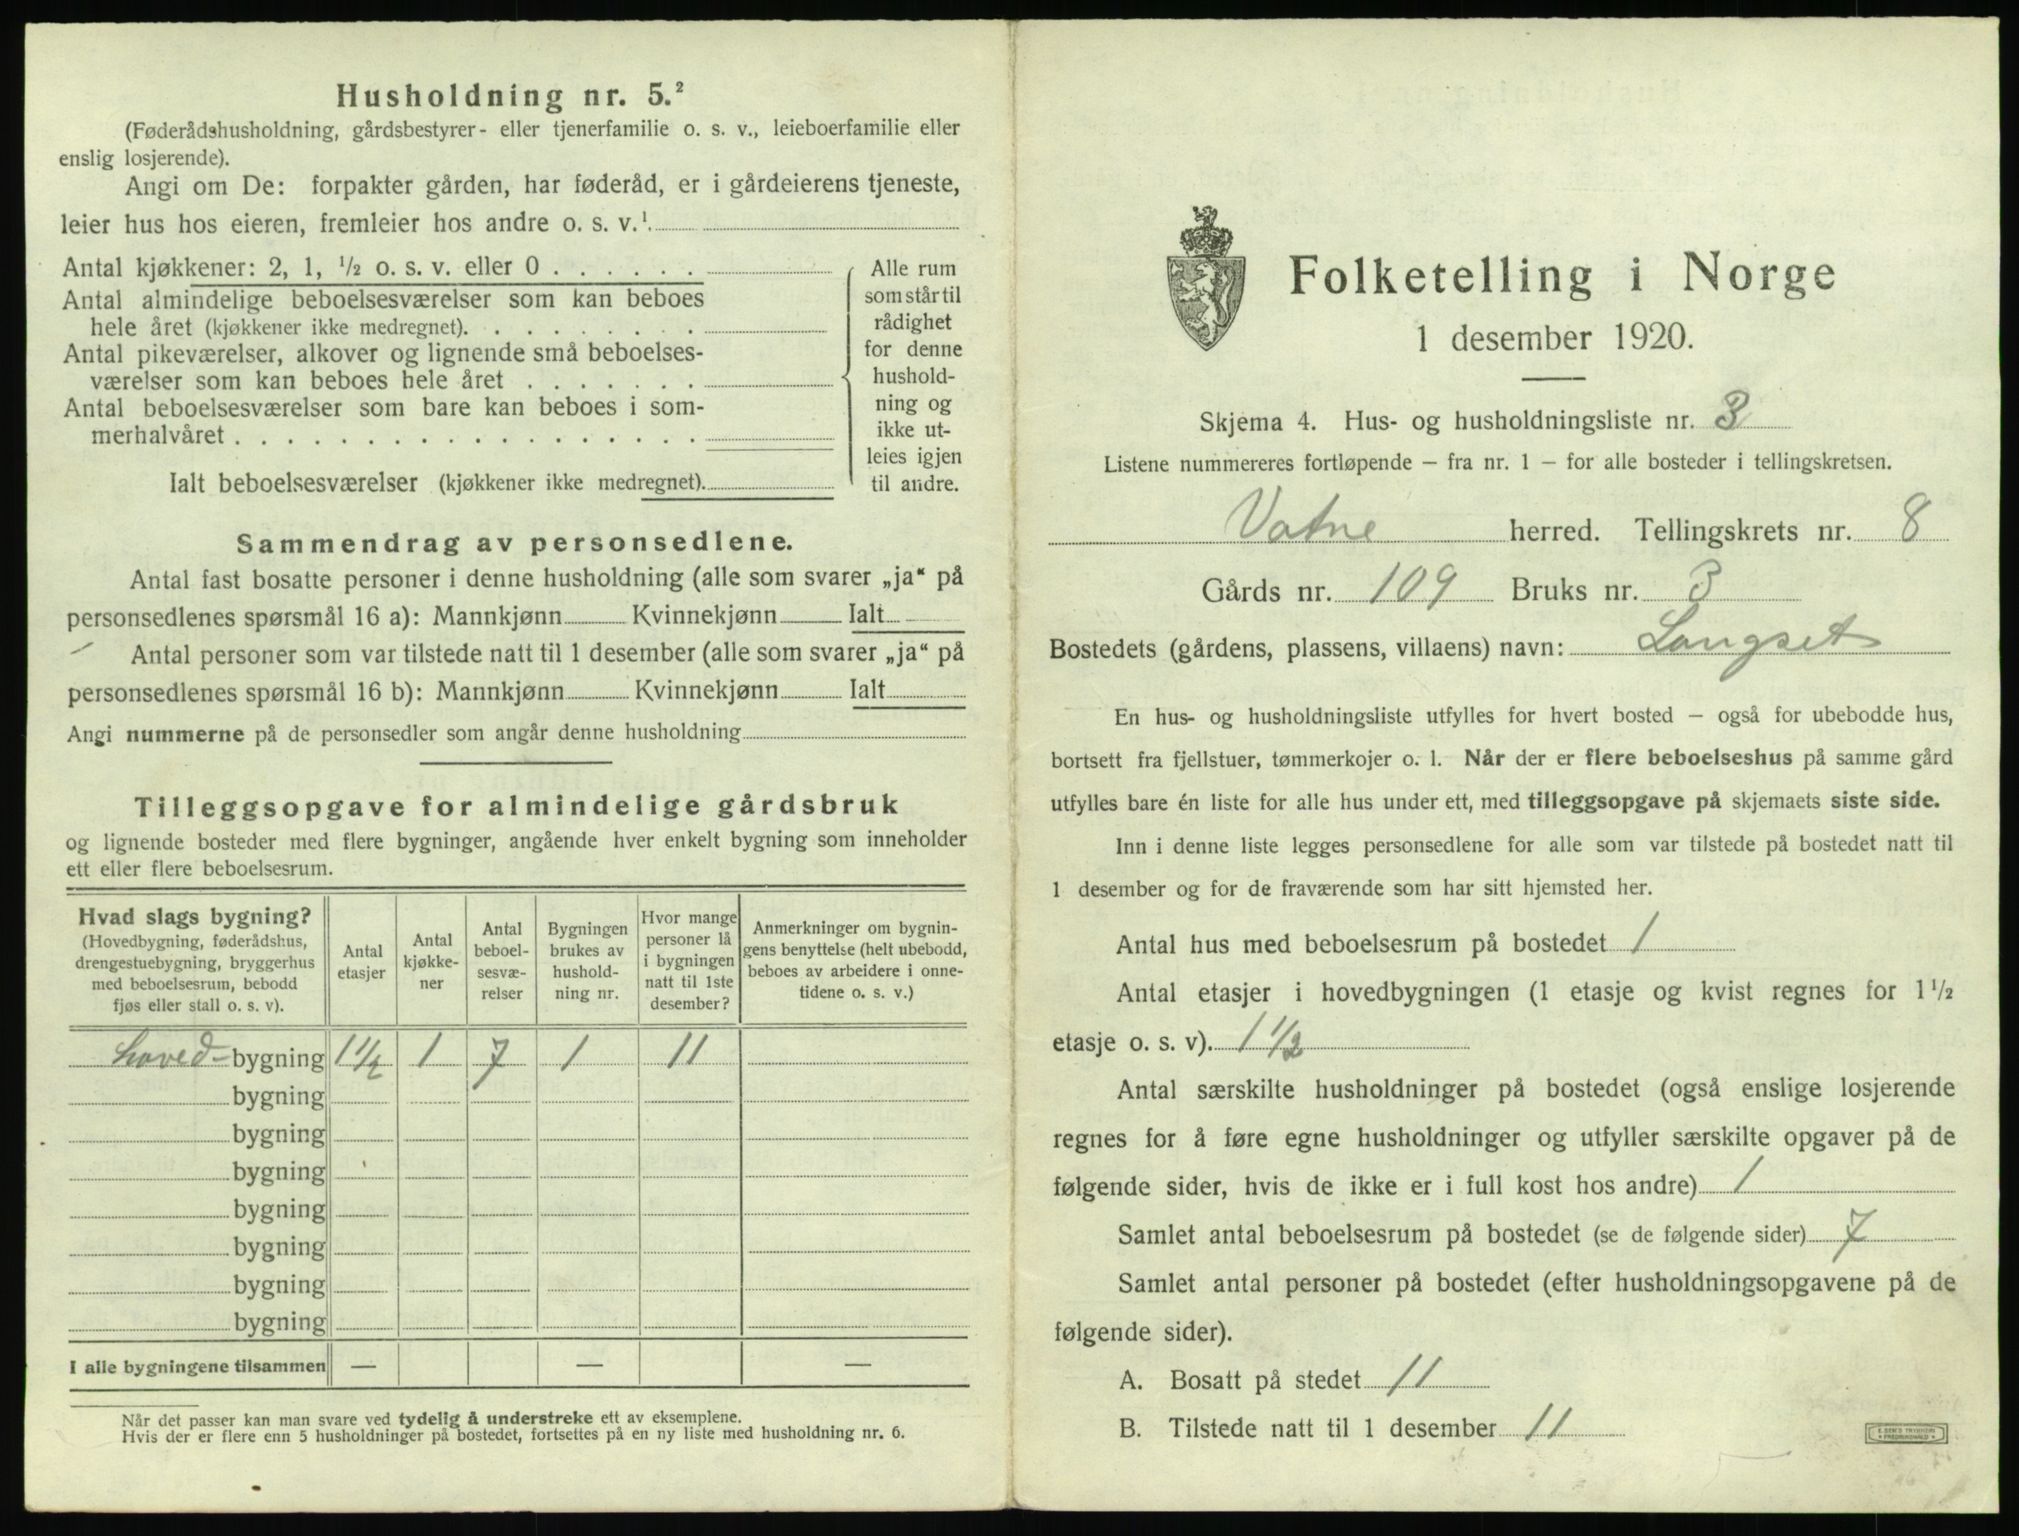 Husholdning nr. 5.²
(Føderådshusholdning, gårdsbestyrer- eller tjenerfamilie o. s. v., leieboerfamilie eller
enslig losjerende).
Angi om De: forpakter gården, har føderåd, er i gårdeierens tjeneste,
leier hus hos eieren, fremleier hos andre o. s. v.¹
Antal kjøkkener: 2, 1, ½ o. s. v. eller 0 . . . . . .
Antal almindelige beboelsesværelser som kan beboes
hele året (kjøkkener ikke medregnet). . . . . . . . .
Antal pikeværelser, alkover og lignende små beboelses-
værelser som kan beboes hele året . . . . . . .
Antal beboelsesværelser som bare kan beboes i som-
merhalvåret . . . . . . . . . . . . . . . . . .
Ialt beboelsesværelser (kjøkkener ikke medregnet).
Alle rum
som står til
rådighet
for denne
hushold-
ning og
ikke ut-
leies igjen
til andre.
Sammendrag av personsedlene.
Antal fast bosatte personer i denne husholdning (alle som svarer „ja“ på
personsedlenes spørsmål 16 a): Mannkjønn Kvinnekjønn Ialt
Antal personer som var tilstede natt til 1 desember (alle som svarer „ja“ på
personsedlenes spørsmål 16 b): Mannkjønn Kvinnekjønn Ialt
Angi nummerne på de personsedler som angår denne husholdning
Tilleggsopgave for almindelige gårdsbruk
og lignende bosteder med flere bygninger, angående hver enkelt bygning som inneholder
ett eller flere beboelsesrum.
Hvad slags bygning?
(Hovedbygning, føderådshus,
drengestuebygning, bryggerhus
med beboelsesrum, bebodd
fjøs eller stall o. s. v).
Antal
etasjer
Antal
kjøkke-
ner
Antal
beboel-
sesvæ-
relser
Bygningen
brukes av
hushold-
ning nr.
Hvor mange
personer lå
i bygningen
natt til 1ste
desember?
Anmerkninger om bygnin-
gens benyttelse (helt ubebodd,
beboes av arbeidere i onne-
tidene o. s. v.)
hoved-bygning 1½ 1 7 1 11
bygning
bygning
bygning
bygning
bygning
bygning
bygning
I alle bygningene tilsammen — — —
Når det passer kan man svare ved tydelig å understreke ett av eksemplene.
Hvis der er flere enn 5 husholdninger på bostedet, fortsettes på en ny liste med husholdning nr. 6.
Folketelling i Norge
1 desember 1920.
Skjema 4. Hus- og husholdningsliste nr. 3
Listene nummereres fortløpende — fra nr. 1 — for alle bosteder i tellingskretsen.
Vatne herred. Tellingskrets nr. 8
Gårds nr. 109 Bruks nr. 3
Bostedets (gårdens, plassens, villaens) navn: Langset
En hus- og husholdningsliste utfylles for hvert bosted — også for ubebodde hus,
bortsett fra fjellstuer, tømmerkojer o. l. Når der er flere beboelseshus på samme gård
utfylles bare én liste for alle hus under ett, med tilleggsopgave på skjemaets siste side.
Inn i denne liste legges personsedlene for alle som var tilstede på bostedet natt til
1 desember og for de fraværende som har sitt hjemsted her.
Antal hus med beboelsesrum på bostedet 1
Antal etasjer i hovedbygningen (1 etasje og kvist regnes for 1½
etasje o. s. v). 1½
Antal særskilte husholdninger på bostedet (også enslige losjerende
regnes for å føre egne husholdninger og utfyller særskilte opgaver på de
følgende sider, hvis de ikke er i full kost hos andre) 1
Samlet antal beboelsesrum på bostedet (se de følgende sider) 7
Samlet antal personer på bostedet (efter husholdningsopgavene på de
følgende sider).
A. Bosatt på stedet 11
B. Tilstede natt til 1 desember 11